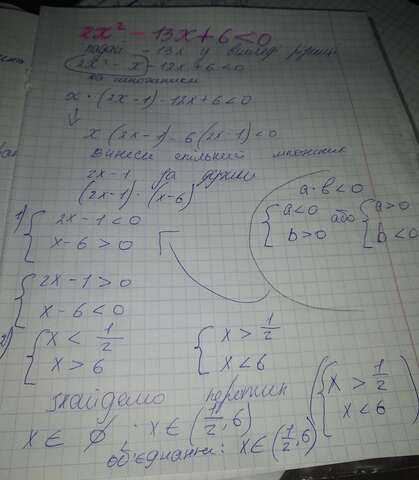 2x² - 13x + 6 < 0
подай -13x у вигляді різниці
2x² - x - 12x + 6 < 0
x · (2x-1) - 12x + 6 < 0
↓
x (2x-1) - 6(2x-1) < 0
Винеси спільний множник
2x-1 за дужки
(2x-1) · (x-6)
a·b < 0
{ a < 0
b > 0
або
{ a > 0
b < 0
1) { 2x-1 < 0
x-6 > 0
{ 2x-1 > 0
x-6 < 0
2) { x < 1/2
x > 6
{ x > 1/2
x < 6
знайдемо перетин
x ∈ ∅, x ∈ (1/2, 6)
( { x > 1/2
x < 6
об'єднання: x ∈ (1/2, 6)